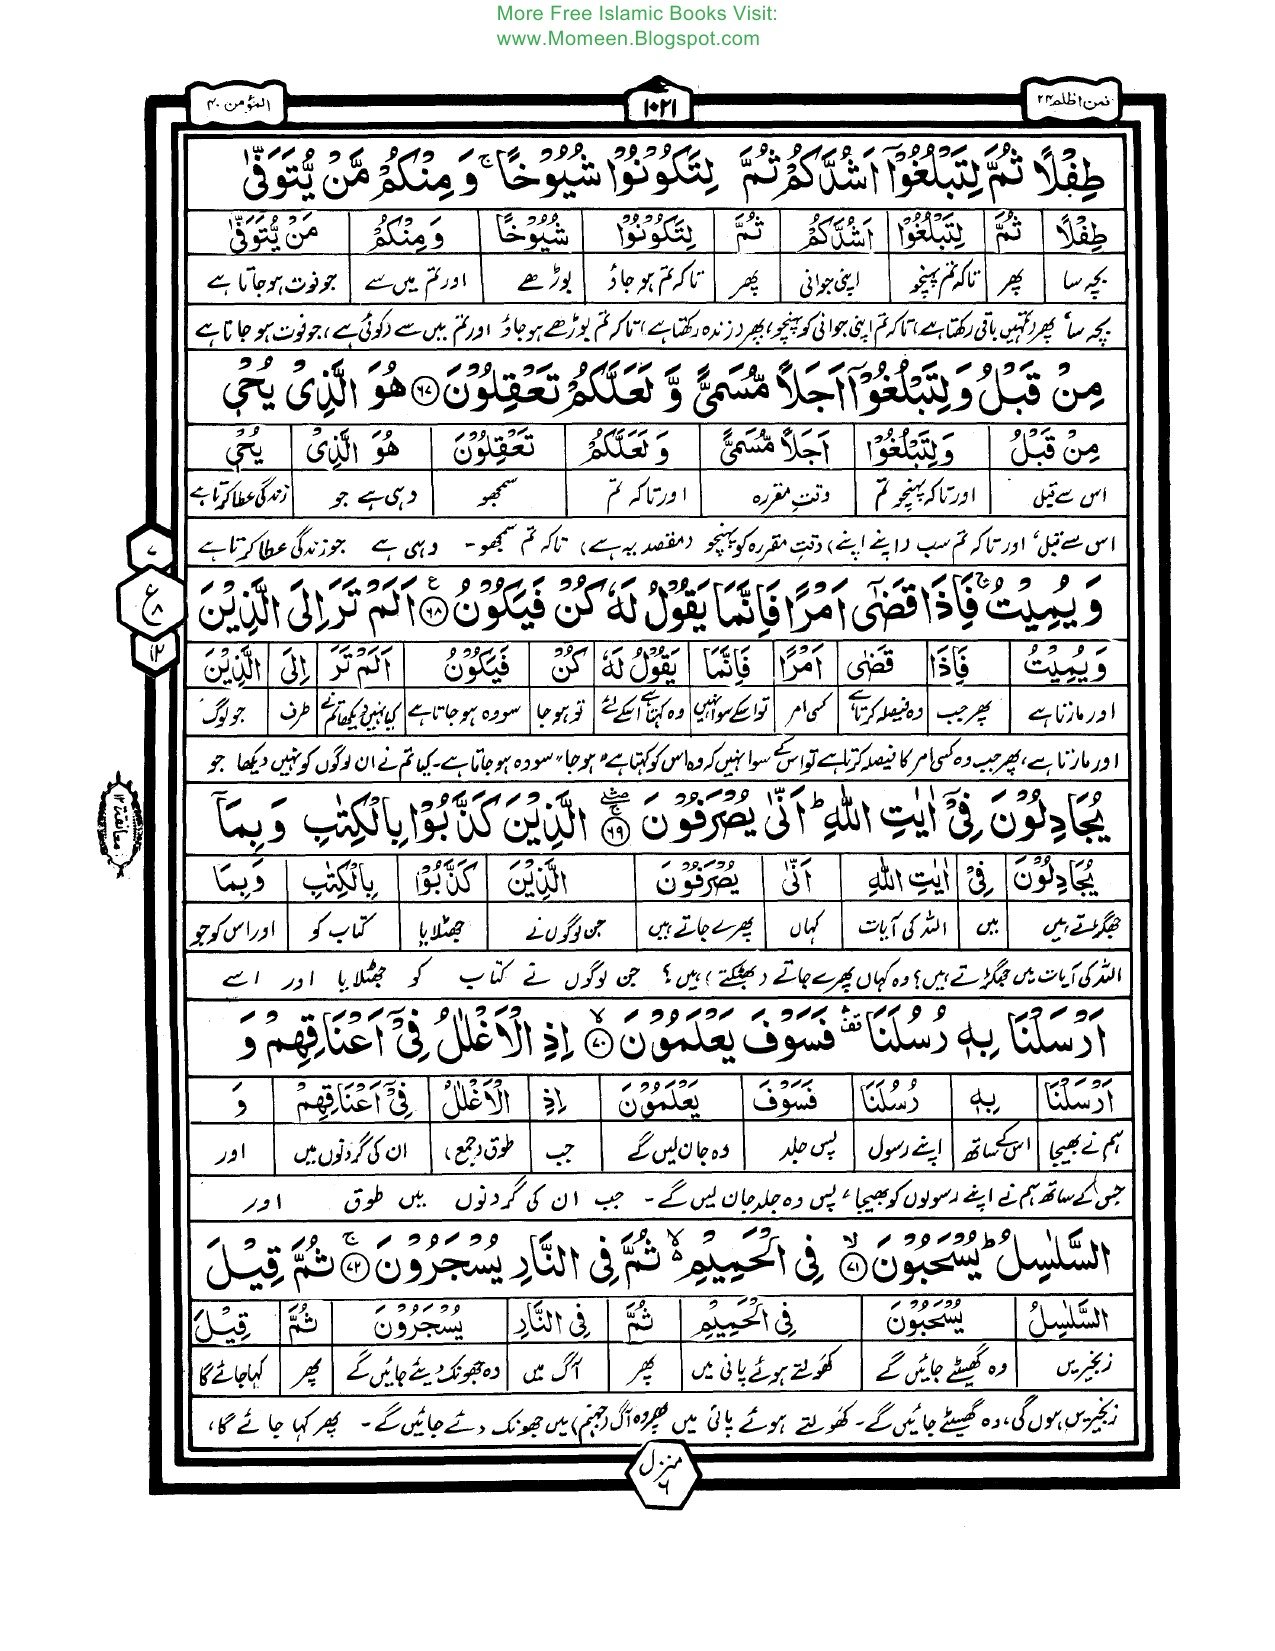 More Free Islamic Books Visit:
www.Momeen.Blogspot.com
فمن اظلم ۲۴
۱۰۲۱
المؤمن ۴۰
طِفْلًا ثُمَّ لِتَبْلُغُوْٓا اَشُدَّكُمْ ثُمَّ لِتَكُوْنُوْا شُيُوْخًا ۚ وَمِنْكُمْ مَّنْ يُّتَوَفّٰى
طِفْلًا ثُمَّ لِتَبْلُغُوْٓا اَشُدَّكُمْ ثُمَّ لِتَكُوْنُوْا شُيُوْخًا وَمِنْكُمْ مَنْ يُّتَوَفّٰى
بچہ سا پھر تاکہ تم پہنچو اپنی جوانی پھر تاکہ تم ہو جاؤ بوڑھے اور تم میں سے جو فوت ہو جاتا ہے
بچہ سا، پھر (تمہیں باقی رکھتا ہے) تاکہ تم اپنی جوانی کو پہنچو، پھر (زندہ رکھتا ہے) تاکہ تم بوڑھے ہو جاؤ اور تم میں سے (کوئی ہے) جو فوت ہو جاتا ہے
مِنْ قَبْلُ وَلِتَبْلُغُوْٓا اَجَلًا مُّسَمًّى وَّ لَعَلَّكُمْ تَعْقِلُوْنَ ۶۷ هُوَ الَّذِيْ يُحْيٖ
مِنْ قَبْلُ وَلِتَبْلُغُوْٓا اَجَلًا مُّسَمًّى وَ لَعَلَّكُمْ تَعْقِلُوْنَ هُوَ الَّذِيْ يُحْيٖ
اس سے قبل اور تاکہ پہنچو تم وقتِ مقررہ اور تاکہ تم سمجھو وہی ہے جو زندگی عطا کرتا ہے
اس سے قبل، اور تاکہ تم سب (اپنے اپنے) وقتِ مقررہ کو پہنچو (مقصد یہ ہے) تاکہ تم سمجھو۔ وہی ہے جو زندگی عطا کرتا ہے
۷
ع
۸
۱۲
وَيُمِيْتُ ۚ فَاِذَا قَضٰٓى اَمْرًا فَاِنَّمَا يَقُوْلُ لَهٗ كُنْ فَيَكُوْنُ ۶۸ ع اَلَمْ تَرَ اِلَى الَّذِيْنَ
وَيُمِيْتُ فَاِذَا قَضٰٓى اَمْرًا فَاِنَّمَا يَقُوْلُ لَهٗ كُنْ فَيَكُوْنُ اَلَمْ تَرَ اِلَى الَّذِيْنَ
اور مارتا ہے پھر جب وہ فیصلہ کرتا ہے کسی امر تو اسکے سوا نہیں وہ کہتا ہے اسکے لئے تو ہو جا سو وہ ہو جاتا ہے کیا نہیں دیکھا تم نے طرف جو لوگ
اور مارتا ہے، پھر جب وہ کسی امر کا فیصلہ کرتا ہے تو اس کے سوا نہیں کہ وہ اس کو کہتا ہے "ہو جا" سو وہ ہو جاتا ہے۔ کیا تم نے ان لوگوں کو نہیں دیکھا جو
معانقة ۱۲
يُجَادِلُوْنَ فِيْٓ اٰيٰتِ اللّٰهِ ؕ اَنّٰى يُصْرَفُوْنَ ۶۹ الَّذِيْنَ كَذَّبُوْا بِالْكِتٰبِ وَبِمَآ
يُجَادِلُوْنَ فِيْٓ اٰيٰتِ اللّٰهِ اَنّٰى يُصْرَفُوْنَ الَّذِيْنَ كَذَّبُوْا بِالْكِتٰبِ وَبِمَآ
جھگڑتے ہیں میں اللہ کی آیات کہاں پھرے جاتے ہیں جن لوگوں نے جھٹلایا کتاب کو اور اس کو جو
اللہ کی آیات میں جھگڑتے ہیں؟ وہ کہاں پھرے جاتے (بھٹکتے) ہیں؟ جن لوگوں نے کتاب کو جھٹلایا اور اسے
اَرْسَلْنَا بِهٖ رُسُلَنَا ۛ فَسَوْفَ يَعْلَمُوْنَ ۷۰ اِذِ الْاَغْلٰلُ فِيْٓ اَعْنَاقِهِمْ وَ
اَرْسَلْنَا بِهٖ رُسُلَنَا فَسَوْفَ يَعْلَمُوْنَ اِذِ الْاَغْلٰلُ فِيْٓ اَعْنَاقِهِمْ وَ
ہم نے بھیجا اس کے ساتھ اپنے رسول پس جلد وہ جان لیں گے جب طوق (جمع) ان کی گردنوں میں اور
جس کے ساتھ ہم نے اپنے رسولوں کو بھیجا، پس وہ جلد جان لیں گے۔ جب ان کی گردنوں میں طوق اور
السَّلٰسِلُ ؕ يُسْحَبُوْنَ ۷۱ فِي الْحَمِيْمِ ۙ ثُمَّ فِي النَّارِ يُسْجَرُوْنَ ۷۲ ثُمَّ قِيْلَ
السَّلٰسِلُ يُسْحَبُوْنَ فِي الْحَمِيْمِ ثُمَّ فِي النَّارِ يُسْجَرُوْنَ ثُمَّ قِيْلَ
زنجیریں وہ گھسیٹے جائیں گے کھولتے ہوئے پانی میں پھر آگ میں وہ جھونک دیئے جائیں گے پھر کہا جائے گا
زنجیریں ہوں گی، وہ گھسیٹے جائیں گے۔ کھولتے ہوئے پانی میں پھر وہ آگ (جہنم) میں جھونک دئے جائیں گے۔ پھر کہا جائے گا،
منزل ۶